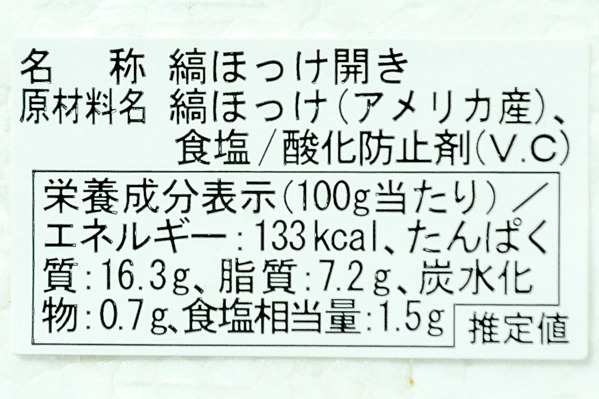 名 称 縞ほっけ開き
原材料名 縞ほっけ(アメリカ産)、
食塩/酸化防止剤(V.C)
栄養成分表示(100g当たり)/
エネルギー:133kcal、たんぱく
質:16.3g、脂質:7.2g、炭水化
物:0.7g、食塩相当量:1.5g
推定値